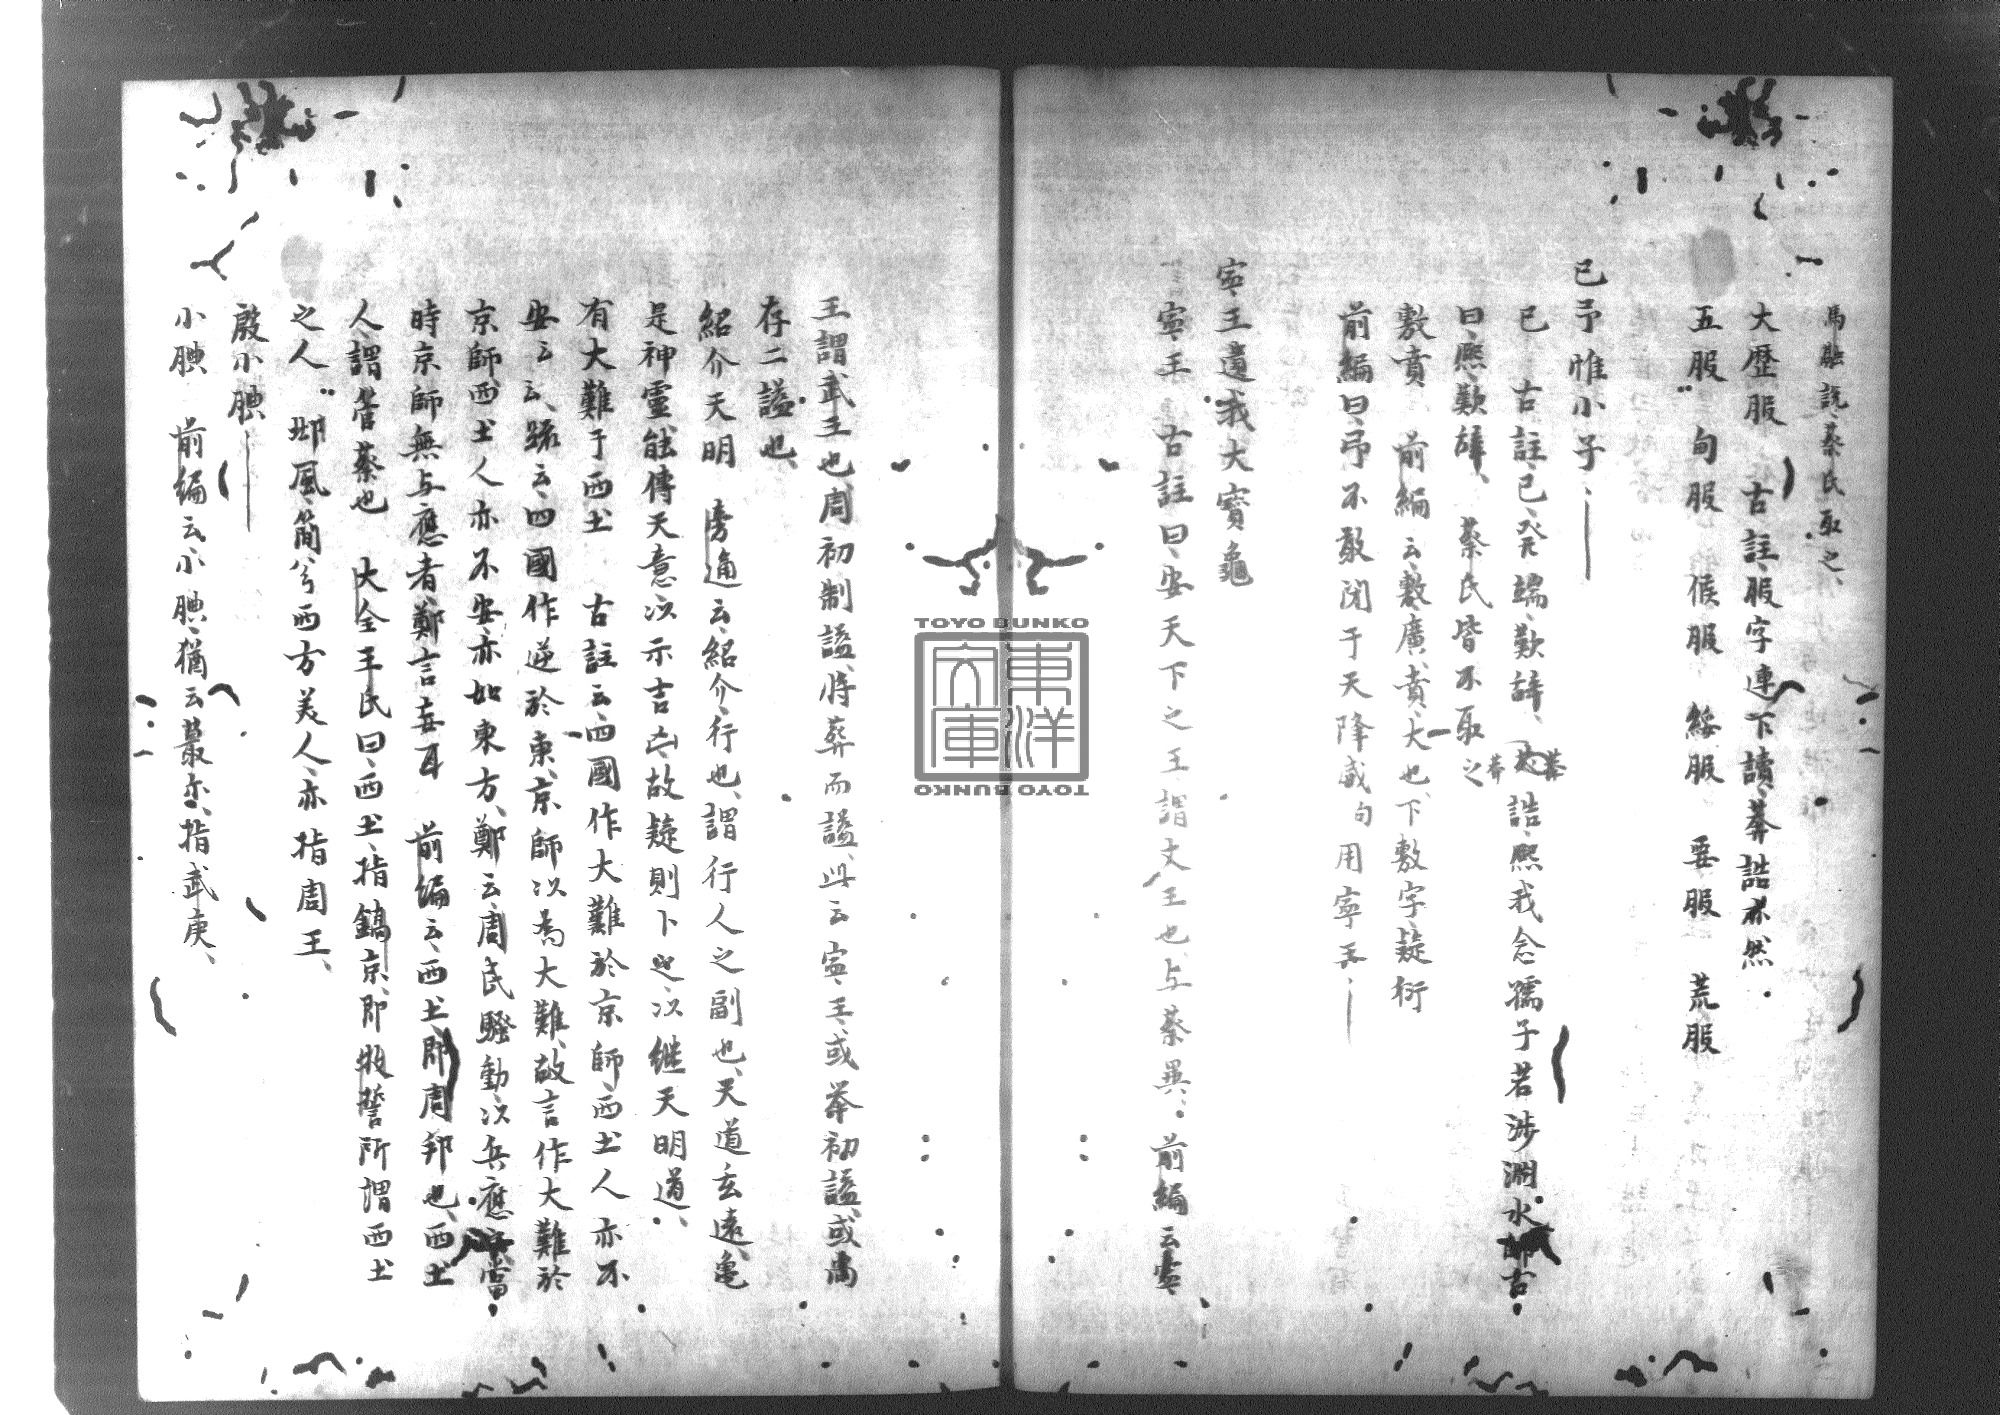 馬融說、蔡氏取之、
大歷服 古註、服字連下讀、莽誥亦然
五服 甸服 侯服 綏服 要服 荒服
已予惟小子、
已 古註、已、發端、歎辞、莽誥、熙我念孺子若涉淵水師古
曰、熙、歎辞、蔡氏皆不取之
敷賁 前編云、敷、廣、賁、大也、下敷字疑衍
前編曰、予不敢閉于天降威句用寧王、
寧王遺我大寶龜
寧王 古註曰、安天下之王、謂文王也、与蔡異、前編云、寧
王謂武王也、周初制謚、將葬而謚、此云寧王、或葬初謚、或尚
存二謚也、
紹介天明 旁通云、紹介、行也、謂行人之副也、天道玄遠、龜
是神靈、能傳天意以示吉凶、故疑則卜之、以継天明道、
有大難于西土 古註云、四國作大難於京師、西土人亦不
安云云、疏云、四國作逆於東、京師以為大難、故言作大難於
京師、西土人亦不安、亦如東方、鄭云、周民騷動、以兵應當
時京師無与應者、鄭言妄耳 前編云、西土、即周邦也、西土
人、謂管蔡也 大全王氏曰、西土、指鎬京、即牧誓所謂西土
之人 邶風、簡兮西方美人、亦指周王、
殷小腆
小腆 前編云、小腆、猶云蕞尓、指武庚、
TOYO BUNKO
東洋文庫
TOYO BUNKO